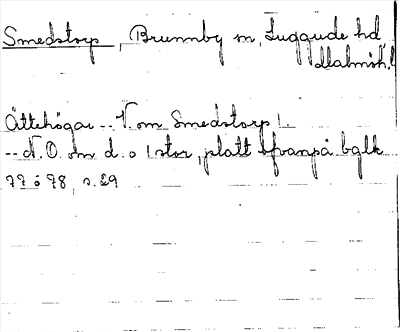 Smedstorp, Brunnby sn, Luggude hd
Malmöh. l.
Ättehögar -- V. om Smedstorp |.
-- N. O. om d. o 1 stor, platt ofvanpå bglk
77 o 78, s. 29